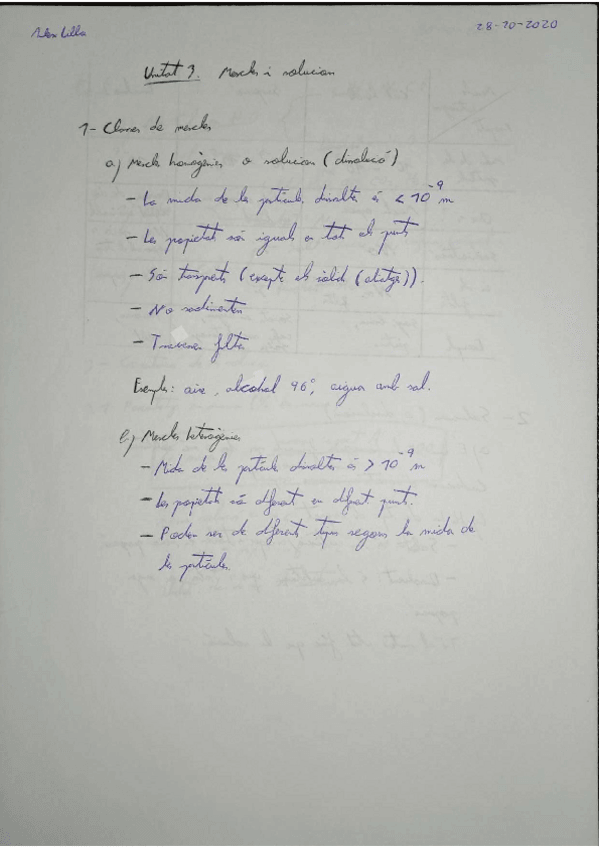 Àlex Lilla
28-10-2020
Unitat 3. Mescles i solucions
1- Classes de mescles
a) Mescles homogènies o solucions (dissolució)
- La mida de les partícules dissoltes és < 10⁻⁹ m
- Les propietats són iguals en tots els punts
- Són transparents (excepte els sòlids (aliatges)).
- No sedimenten
- Travessen filtres
Exemples: aire, alcohol 96°, aigua amb sal.
b) Mescles heterogènies
- Mida de les partícules dissoltes és > 10⁻⁹ m
- Les propietats són diferents en diferents punts.
- Poden ser de diferents tipus segons la mida de
les partícules